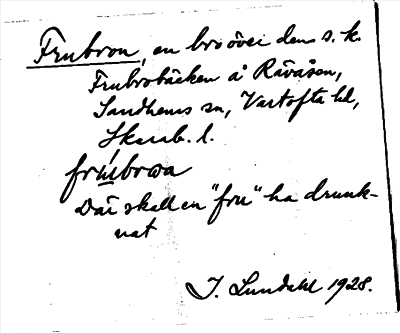 Frubron, en bro över den s.k.
Frubrobäcken å Råvåsen,
Sandhems sn, Vartofta hd,
Skarab. l.
frúbrona
Där skall en "fru" ha drunk-
nat
I. Lundahl 1928.